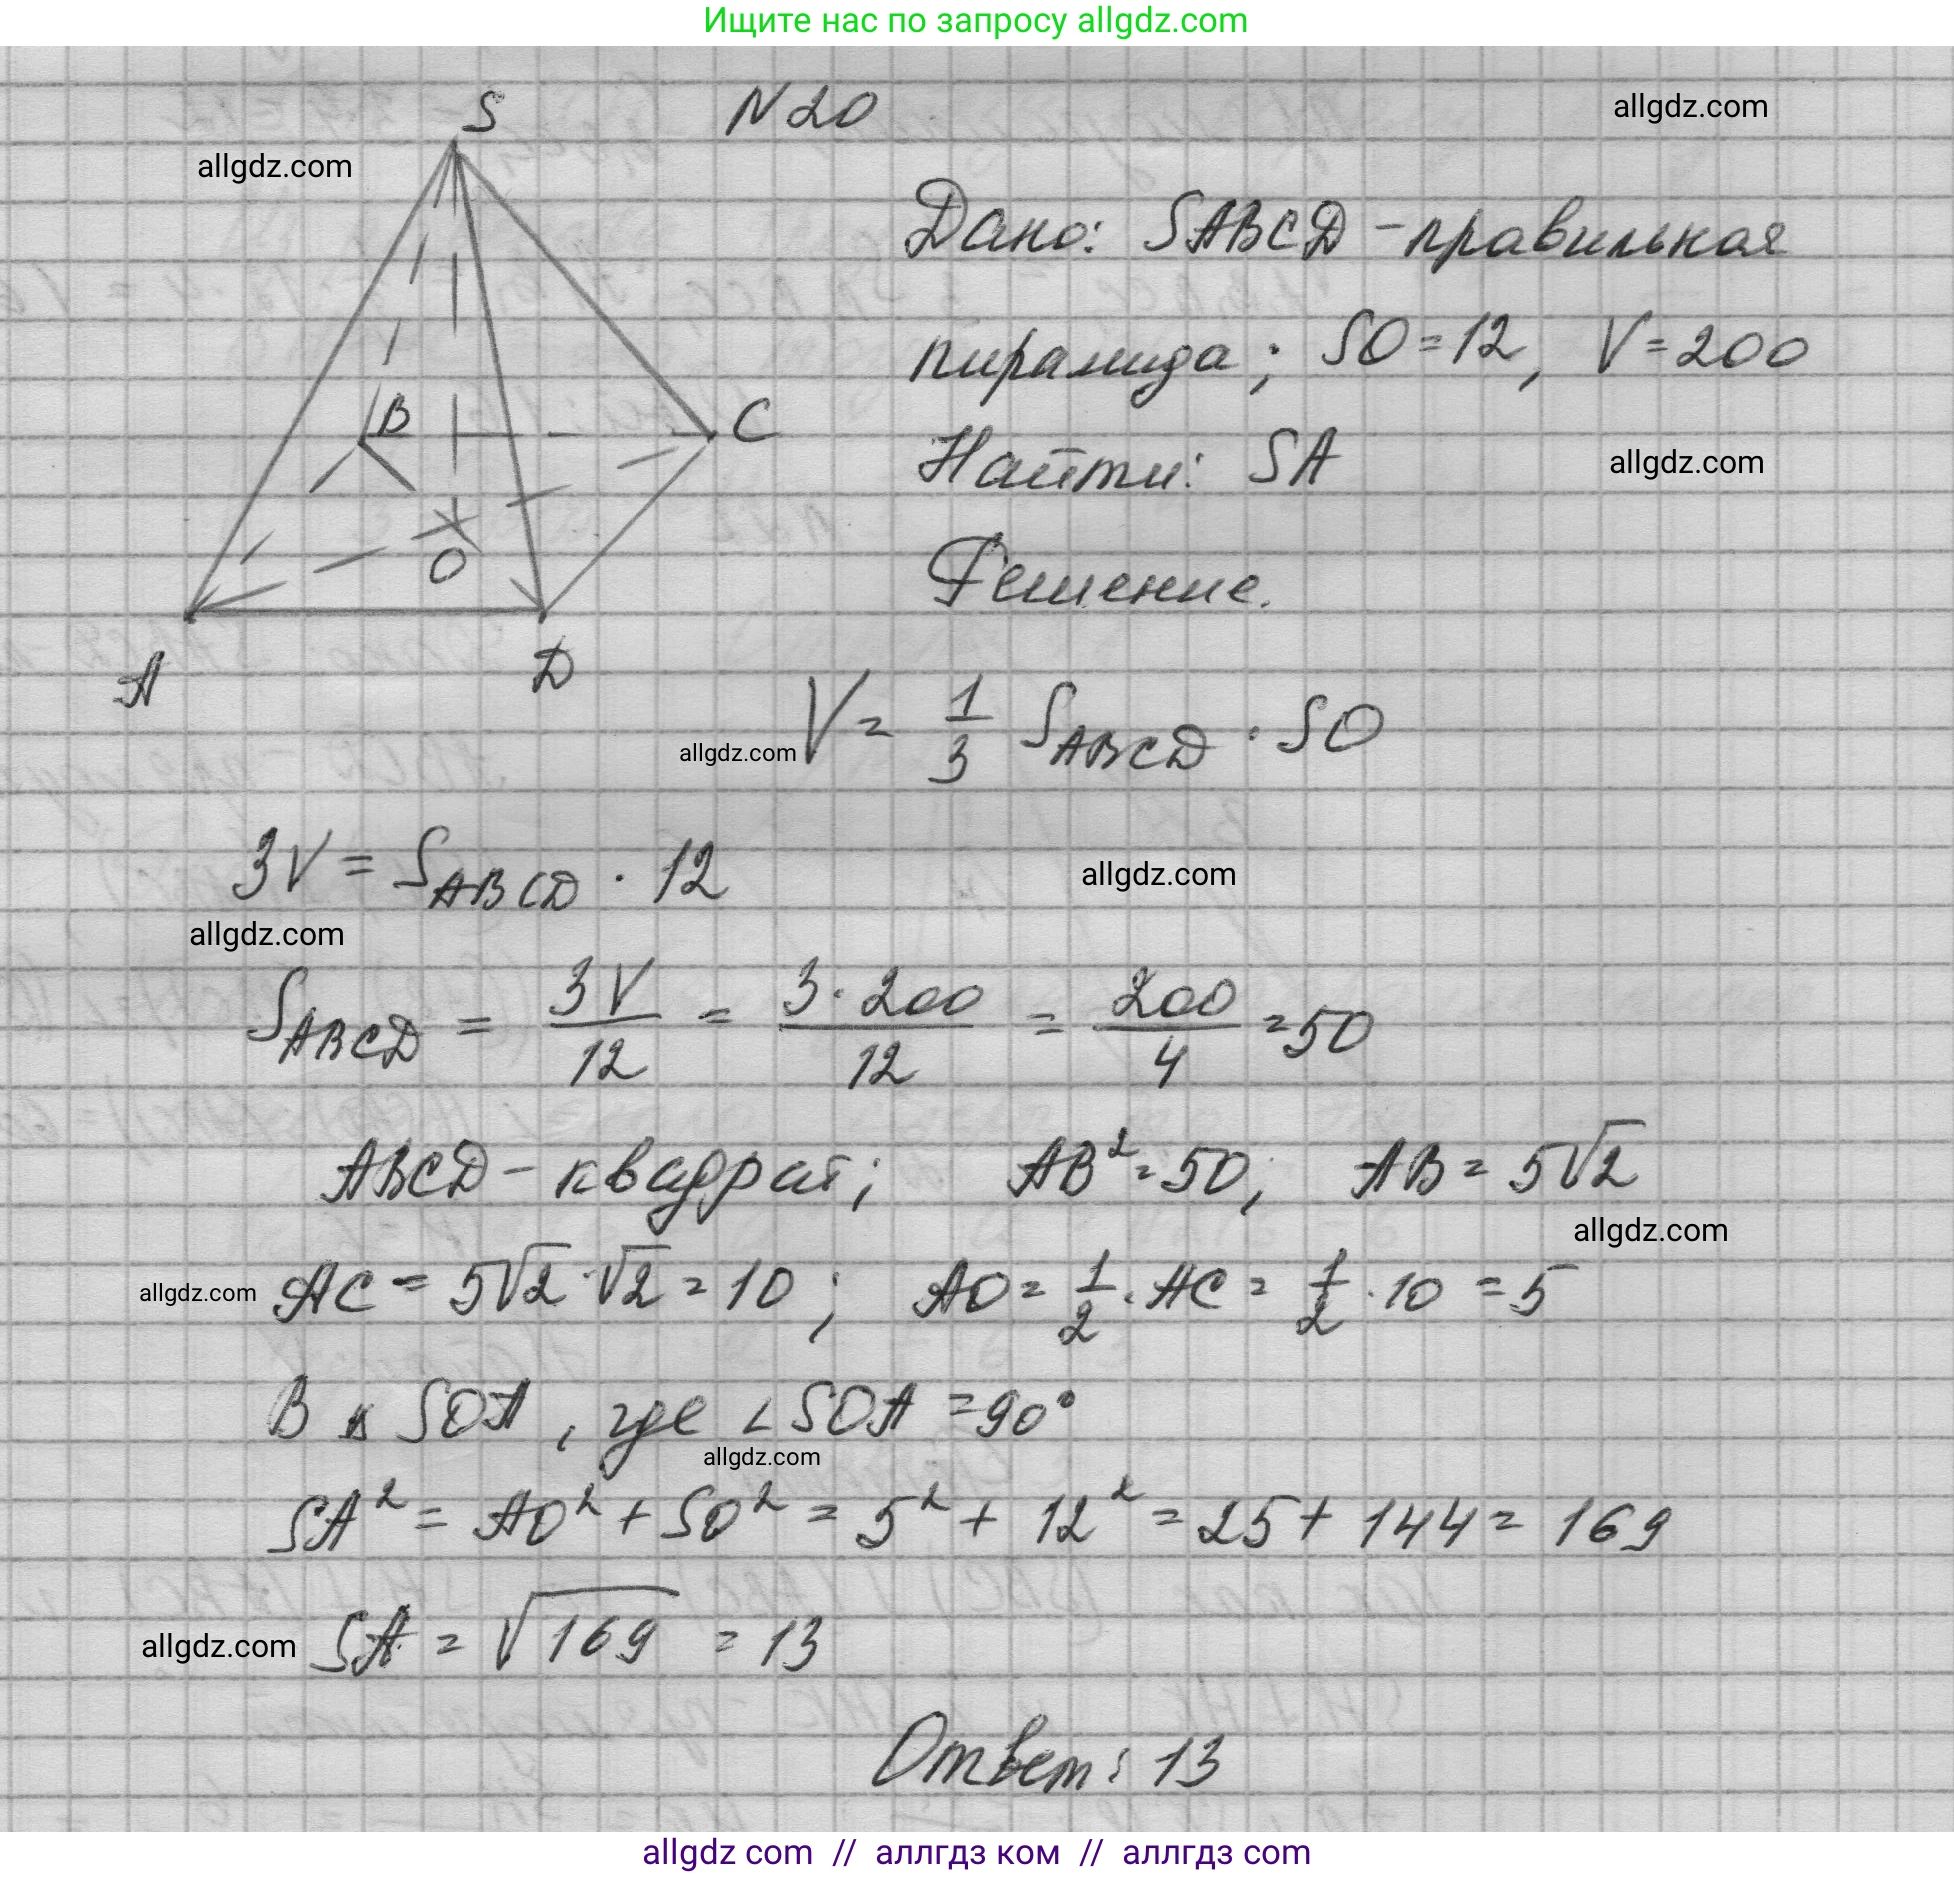 Ищите нас по запросу allgdz.com
S
N20
allgdz.com
allgdz.com
Дано: SABCD - правильная
пирамида; SO = 12, V = 200
B
C
Найти: SA
allgdz.com
O
Решение.
A
D
V = 1/3 S_ABCD · SO
allgdz.com
3V = S_ABCD · 12
allgdz.com
allgdz.com
S_ABCD = 3V/12 = 3·200/12 = 200/4 = 50
ABCD - квадрат; AB² = 50; AB = 5√2
allgdz.com
allgdz.com
AC = 5√2 · √2 = 10; AO = 1/2 · AC = 1/2 · 10 = 5
В ⊿ SOA, где ∠SOA = 90°
allgdz.com
SA² = AO² + SO² = 5² + 12² = 25 + 144 = 169
allgdz.com
SA = √169 = 13
Ответ: 13
allgdz com // аллгдз ком // аллгдз com